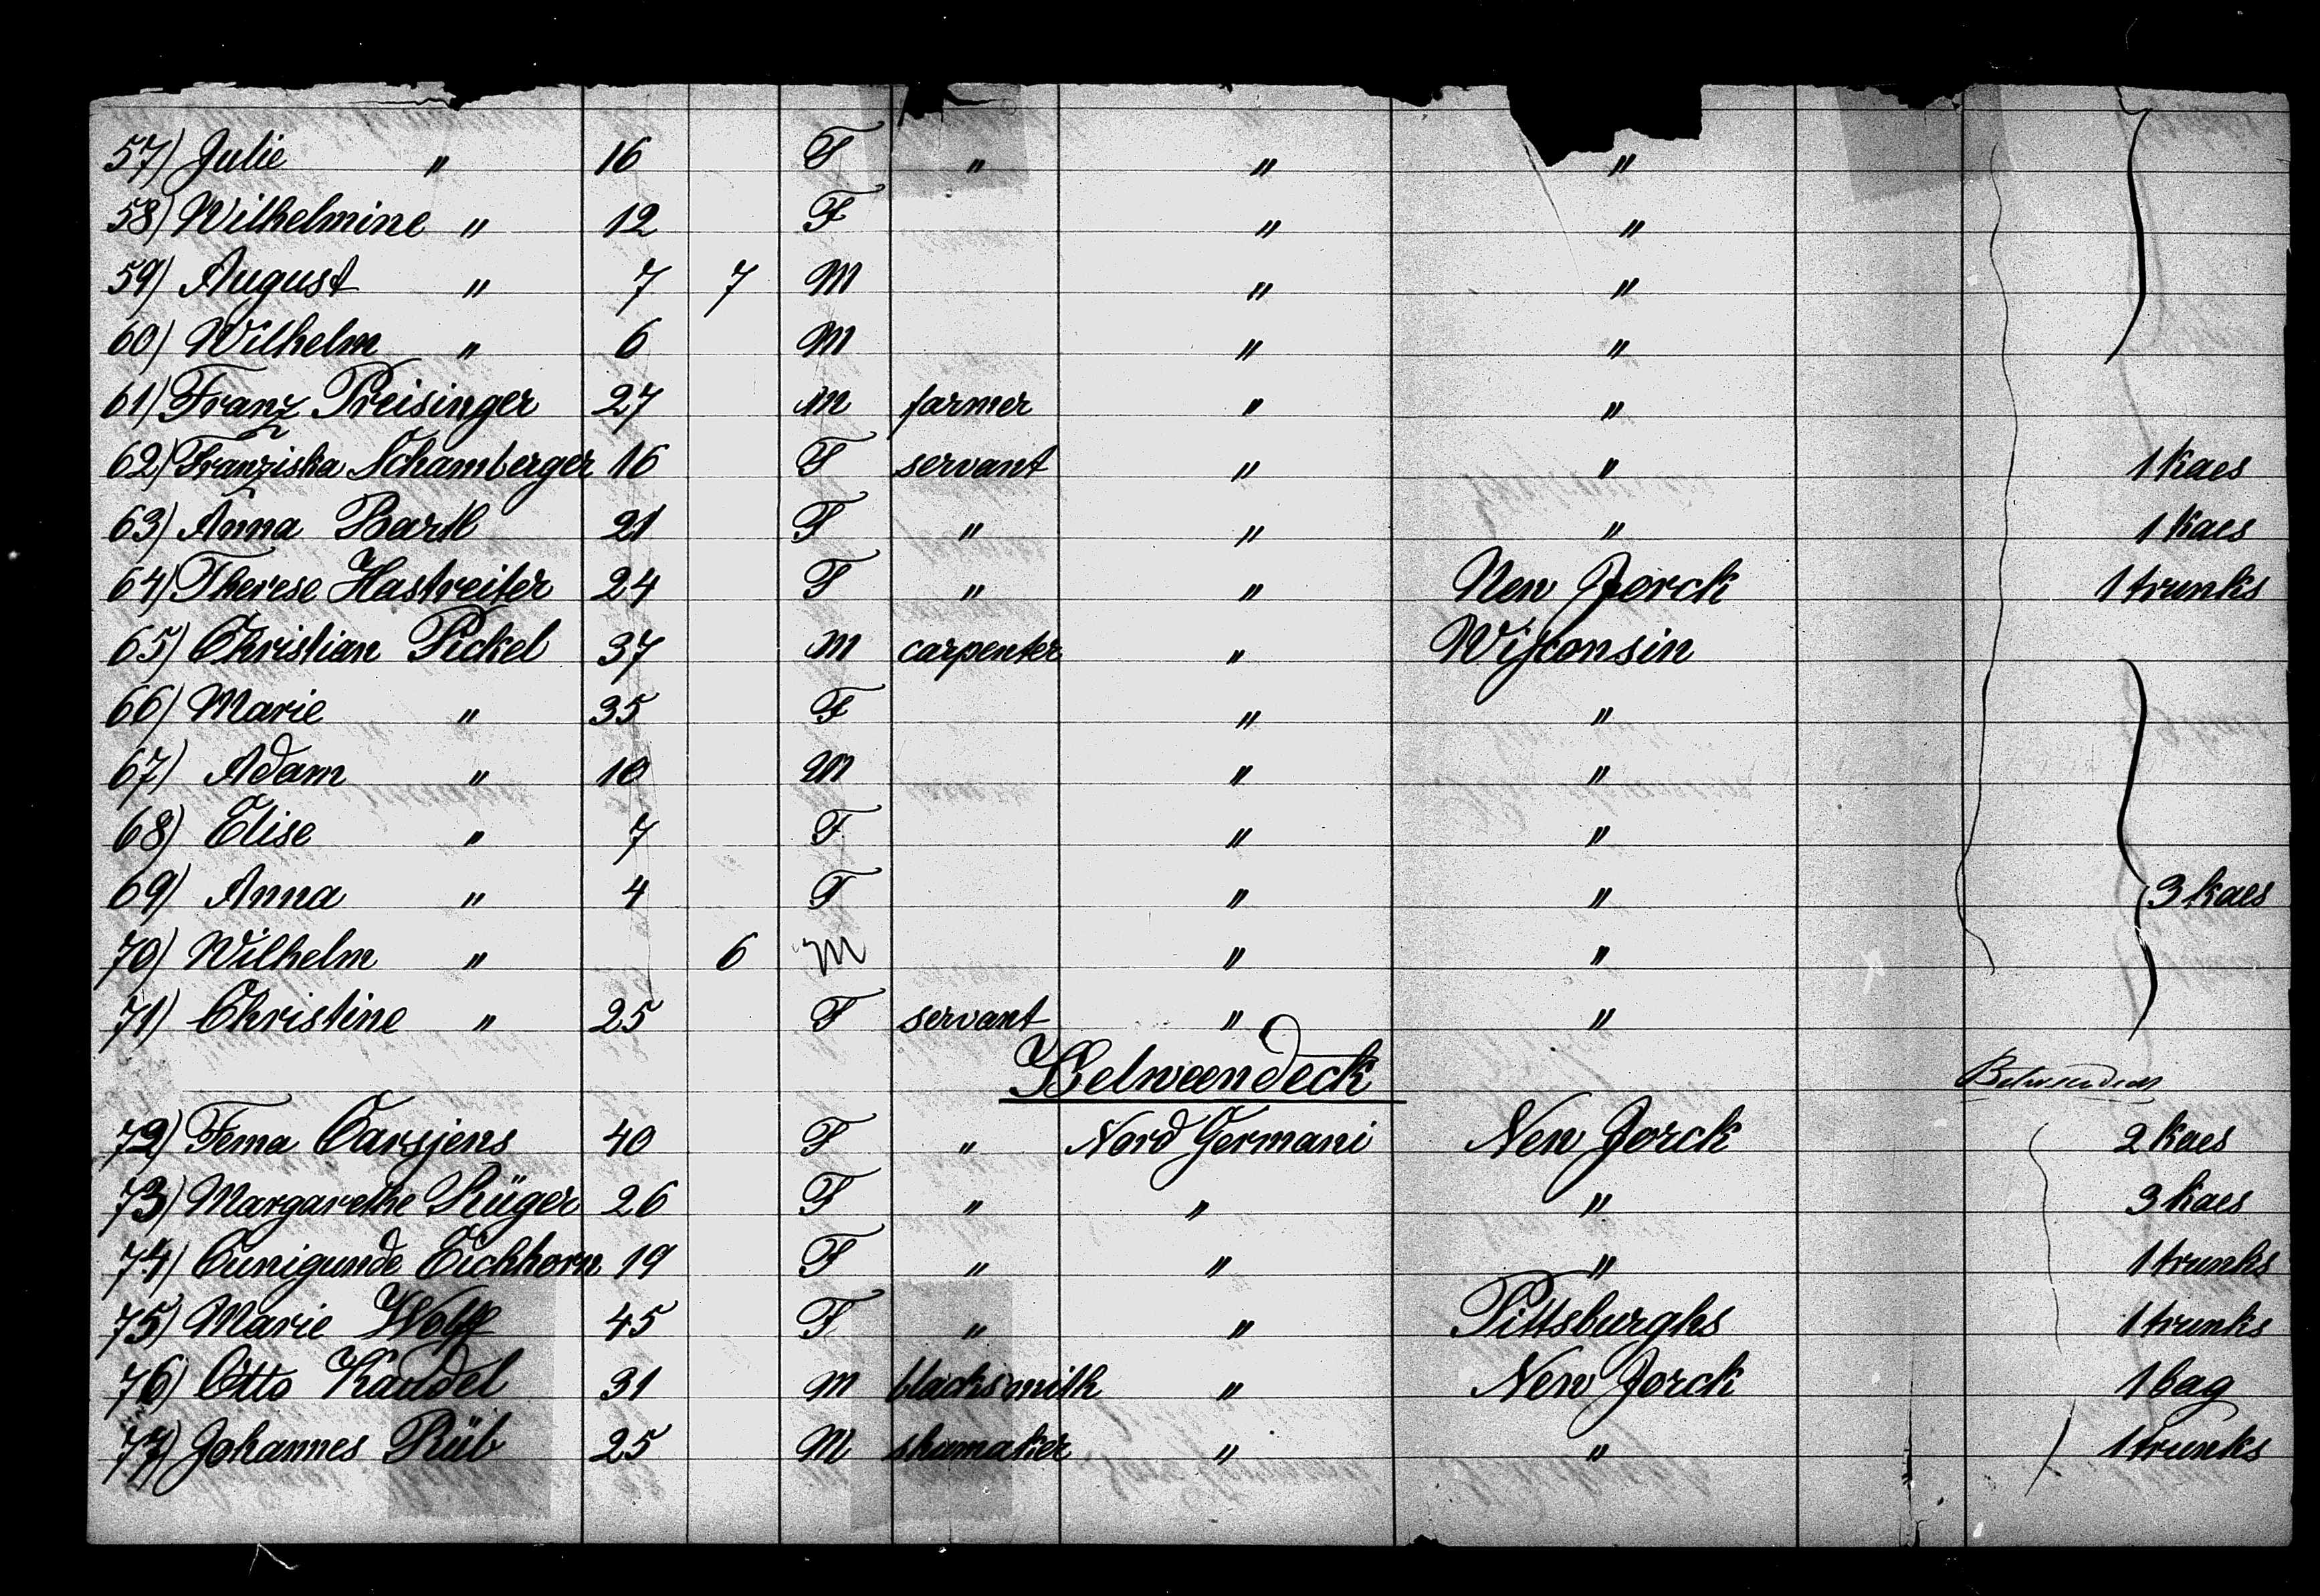 57) Julie " 16 F " " "
58) Wilhelmine " 12 F " "
59) August " 7 7 M " "
60) Wilhelm " 6 M " "
61) Franz Preisinger 27 M farmer " "
62) Franziska Schamberger 16 F servant " " 1 kaes
63) Anna Bartl 21 F " " " 1 kaes
64) Therese Hastreiter 24 F " " New Jorck 1 trunks
65) Christian Pickel 37 M carpenter " Wisconsin
66) Marie " 35 F " "
67) Adam " 10 M " "
68) Elise " 7 F " "
69) Anna " 4 F " " 3 kaes
70) Wilhelm " 6 M " "
71) Christine " 25 F servant " "
Belweendeck
72) Fema Carsjens 40 F " Nord Germani New Jorck 2 kaes
73) Margarethe Rüger 26 F " " " 3 kaes
74) Cunigunde Eichhorn 19 F " " " 1 trunks
75) Marie Wolff 45 F " " Pittsburghs 1 trunks
76) Otto Kaudel 31 M blacksmith " New Jorck 1 bag
77) Johannes Rüb 25 M shumaker " " 1 trunks